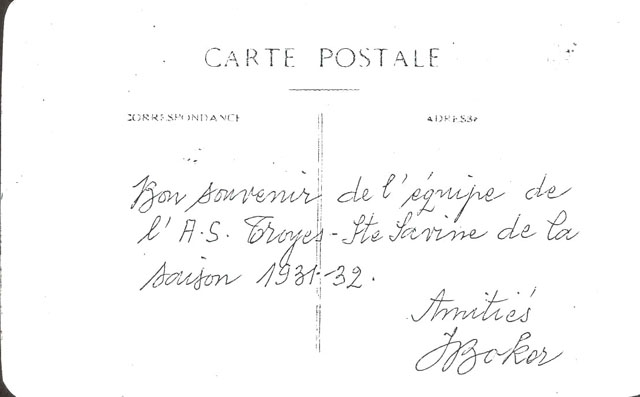 CARTE POSTALE
CORRESPONDANCE
ADRESSE
Bon souvenir de l'équipe de
l'A.S. Troyes-Ste Savine de la
saison 1931-32.
Amitiés
JBokor